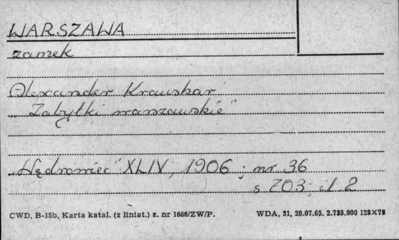 WARSZAWA
zamek
Alexander Kraushar
„Zabytki warszawskie"
„Wędrowiec" XLIV, 1906, nr 36
s 703, il. 2
CWD, B-15b, Karta katal. (z liniat.) z. nr 1606/ZW/P. WDA, 31, 20.07.65. 2.735.000 125×75